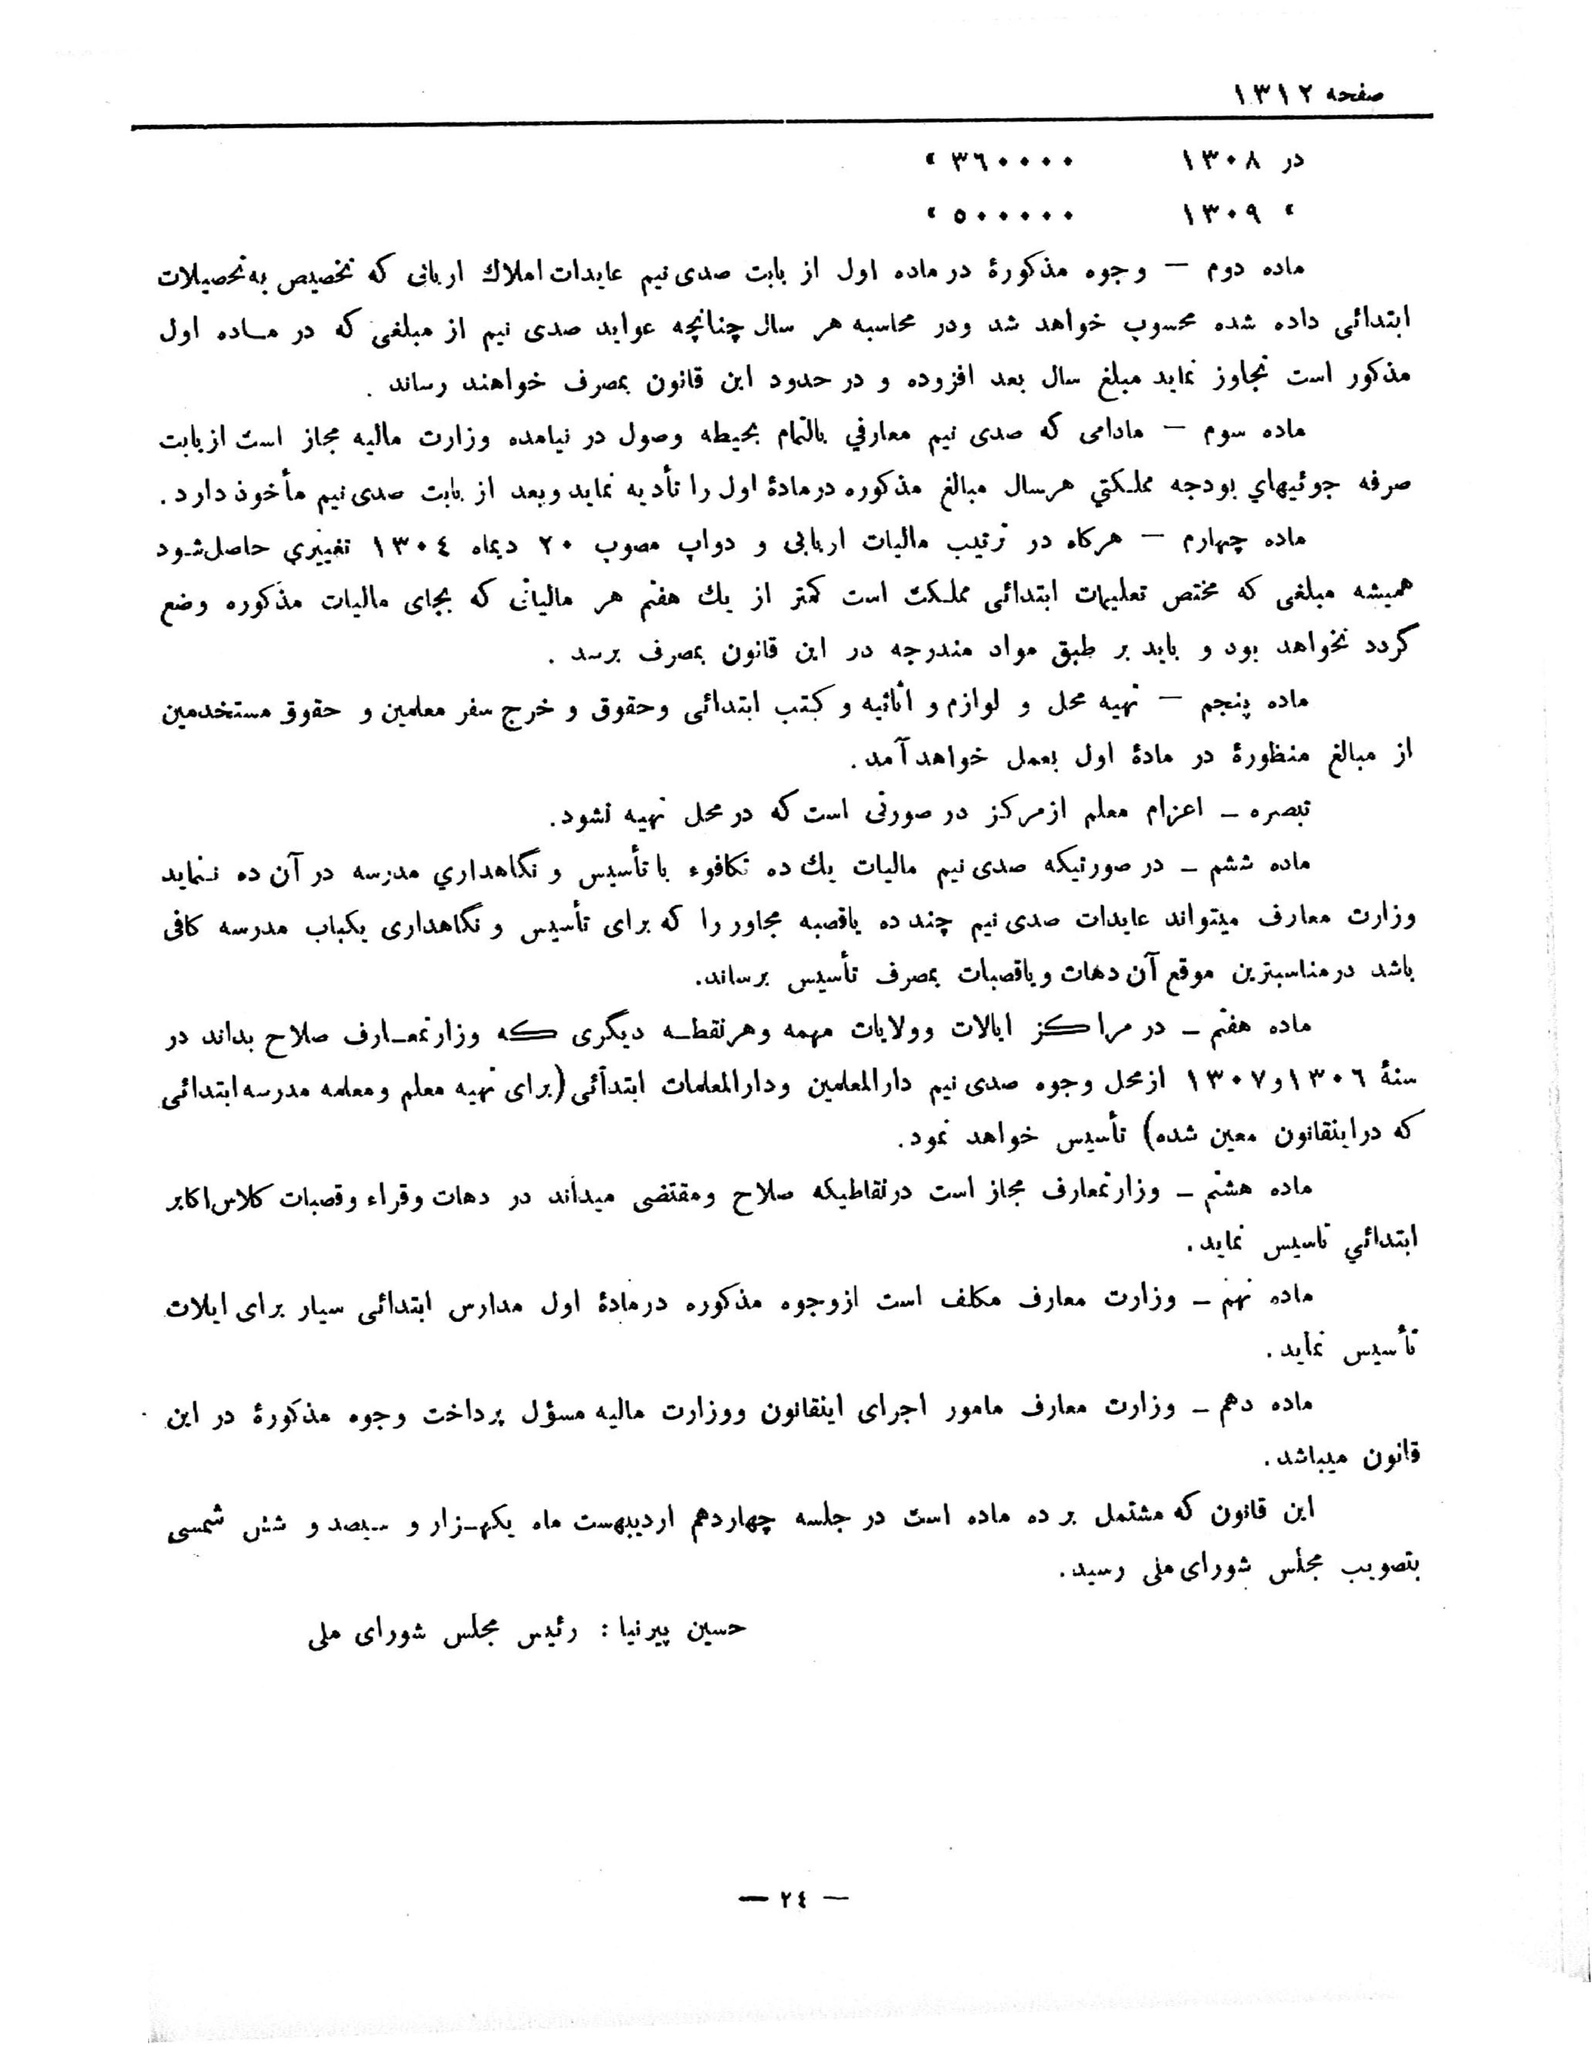 صفحه ۱۳۱۲
در ۱۳۰۸ ۳۶۰۰۰۰ »
» ۱۳۰۹ ۵۰۰۰۰۰ »
ماده دوم — وجوه مذکورهٔ در ماده اول از بابت صدی نیم عایدات املاك اربابی که تخصیص به تحصیلات
ابتدائی داده شده محسوب خواهد شد ودر محاسبه هر سال چنانچه عواید صدی نیم از مبلغی که در ماده اول
مذکور است تجاوز نماید مبلغ سال بعد افزوده و در حدود این قانون بمصرف خواهند رساند .
ماده سوم — مادامی که صدی نیم معارفي بالتمام بحیطه وصول در نیامده وزارت مالیه مجاز است از بابت
صرفه جوئیهاي بودجه مملکتي هرسال مبالغ مذکوره در مادهٔ اول را تأدیه نماید وبعد از بابت صدی نیم مأخوذ دارد .
ماده چهارم — هرکاه در ترتیب مالیات اربابی و دواب مصوب ۲۰ دیماه ۱۳۰٤ تغییري حاصل شود
همیشه مبلغی که مختص تعلیمات ابتدائی مملکت است کمتر از یك هفتم هر مالیاتی که بجای مالیات مذکوره وضع
گردد نخواهد بود و باید بر طبق مواد مندرجه در این قانون بمصرف برسد .
ماده پنجم — تهیه محل و لوازم و اثاثیه و کتب ابتدائی وحقوق و خرج سفر معلمین و حقوق مستخدمین
از مبالغ منظورهٔ در مادهٔ اول بعمل خواهد آمد .
تبصره — اعزام معلم از مرکز در صورتی است که در محل تهیه نشود.
ماده ششم — در صورتیکه صدی نیم مالیات یك ده تکافوء با تأسیس و نگاهداري مدرسه در آن ده ننماید
وزارت معارف میتواند عایدات صدی نیم چند ده یاقصبه مجاور را که برای تأسیس و نگاهداری یکباب مدرسه کافی
باشد در مناسبترین موقع آن دهات و یاقصبات بمصرف تأسیس برساند.
ماده هفتم — در مراکز ایالات وولایات مهمه وهر نقطه دیگری که وزارتمعارف صلاح بداند در
سنهٔ ۱۳۰۶و۱۳۰۷ از محل وجوه صدی نیم دارالمعلمین ودارالمعلمات ابتدائی (برای تهیه معلم ومعلمه مدرسه ابتدائی
که دراینقانون معین شده) تأسیس خواهد نمود.
ماده هشتم — وزارتمعارف مجاز است درنقاطیکه صلاح ومقتضی میداند در دهات وقراء وقصبات کلاس اکابر
ابتدائي تاسیس نماید.
ماده نهم — وزارت معارف مکلف است ازوجوه مذکوره در مادهٔ اول مدارس ابتدائی سیار برای ایلات
تأسیس نماید.
ماده دهم — وزارت معارف مامور اجرای اینقانون ووزارت مالیه مسؤل پرداخت وجوه مذکورهٔ در این
قانون میباشد.
این قانون که مشتمل بر ده ماده است در جلسه چهاردهم اردیبهست ماه یکهزار و سیصد و شش شمسی
بتصویب مجلس شورای ملی رسید.
حسین پیرنیا: رئیس مجلس شورای ملی
— ۲٤ —